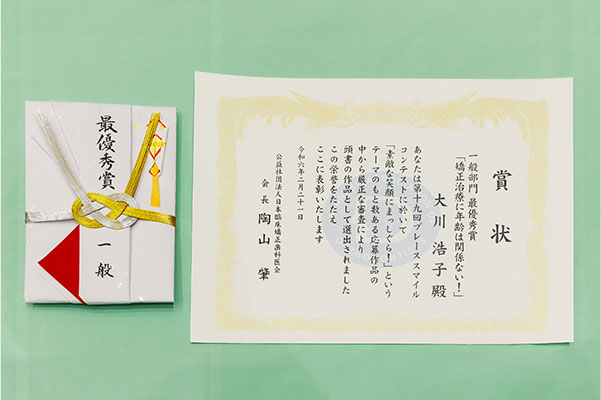 最優秀賞
一般
賞状
一般部門 最優秀賞
「矯正治療に年齢は関係ない!」
大川 浩子 殿
あなたは第十九回ブレーススマイル
コンテストに於いて
「素敵な笑顔にまっしぐら!」という
テーマのもと数ある応募作品の
中から厳正な審査により
頭書の作品として選出されました
この栄誉をたたえ
ここに表彰いたします
令和六年二月二十一日
公益社団法人日本臨床矯正歯科医会
会長 陶山 肇